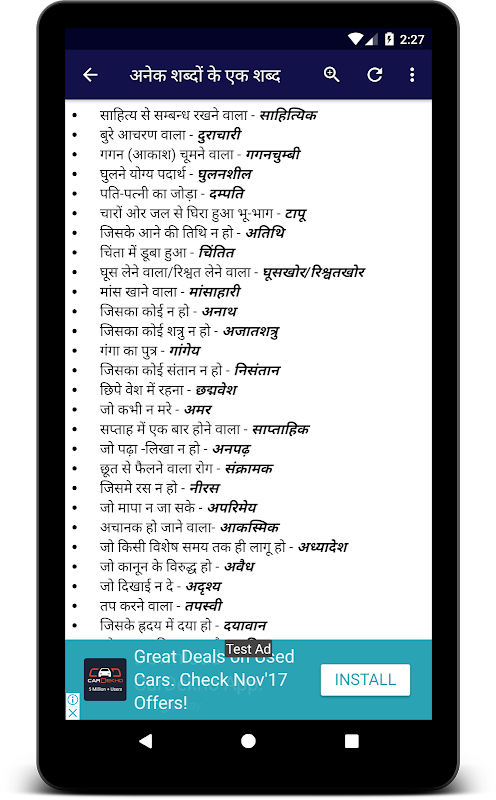 2:27
अनेक शब्दों के एक शब्द
• साहित्य से सम्बन्ध रखने वाला - साहित्यिक
• बुरे आचरण वाला - दुराचारी
• गगन (आकाश) चूमने वाला - गगनचुम्बी
• घुलने योग्य पदार्थ - घुलनशील
• पति-पत्नी का जोड़ा - दम्पति
• चारों ओर जल से घिरा हुआ भू-भाग - टापू
• जिसके आने की तिथि न हो - अतिथि
• चिंता में डूबा हुआ - चिंतित
• घूस लेने वाला/रिश्वत लेने वाला - घूसखोर/रिश्वतखोर
• मांस खाने वाला - मांसाहारी
• जिसका कोई न हो - अनाथ
• जिसका कोई शत्रु न हो - अजातशत्रु
• गंगा का पुत्र - गांगेय
• जिसका कोई संतान न हो - निसंतान
• छिपे वेश में रहना - छद्मवेश
• जो कभी न मरे - अमर
• सप्ताह में एक बार होने वाला - साप्ताहिक
• जो पढ़ा -लिखा न हो - अनपढ़
• छूत से फैलने वाला रोग - संक्रामक
• जिसमे रस न हो - नीरस
• जो मापा न जा सके - अपरिमेय
• अचानक हो जाने वाला- आकस्मिक
• जो किसी विशेष समय तक ही लागू हो - अध्यादेश
• जो कानून के विरुद्ध हो - अवैध
• जो दिखाई न दे - अदृश्य
• तप करने वाला - तपस्वी
• जिसके ह्रदय में दया हो - दयावान
Test Ad
Great Deals on Used
Cars. Check Nov'17
Offers!
INSTALL
CARDEKHO
5 Million + Users